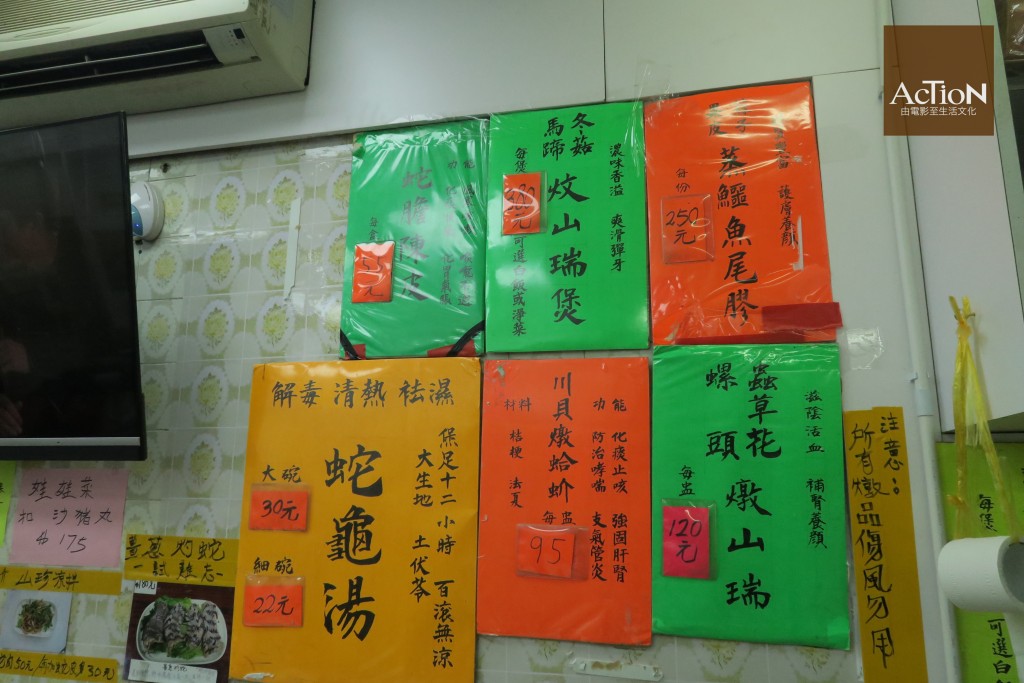 AcTioN
由電影至生活文化
蛇膽陳皮
功能
冬菇
馬蹄
炆山瑞煲
濃味香溢 爽滑彈牙
每煲
元
可選白飯或淨菜
蒸鱷魚尾膠
護膚養顏
每份
250
元
解毒 清熱 袪濕
蛇龜湯
大碗
30元
細碗
22元
煲足十二小時 百滾無涼
大生地 土伏苓
川貝燉蛤蚧
材料
桔梗 法夏
功能
化痰止咳 強固肝腎
防治哮喘 支氣管炎
每盅
95
蟲草花
螺頭
燉山瑞
滋陰活血 補腎養顏
每盅
120
元
注意:
所有燉品傷風勿用
娃娃菜
扣沙猪丸
175
薑蔥灼蛇
一試難忘
每煲
可選白